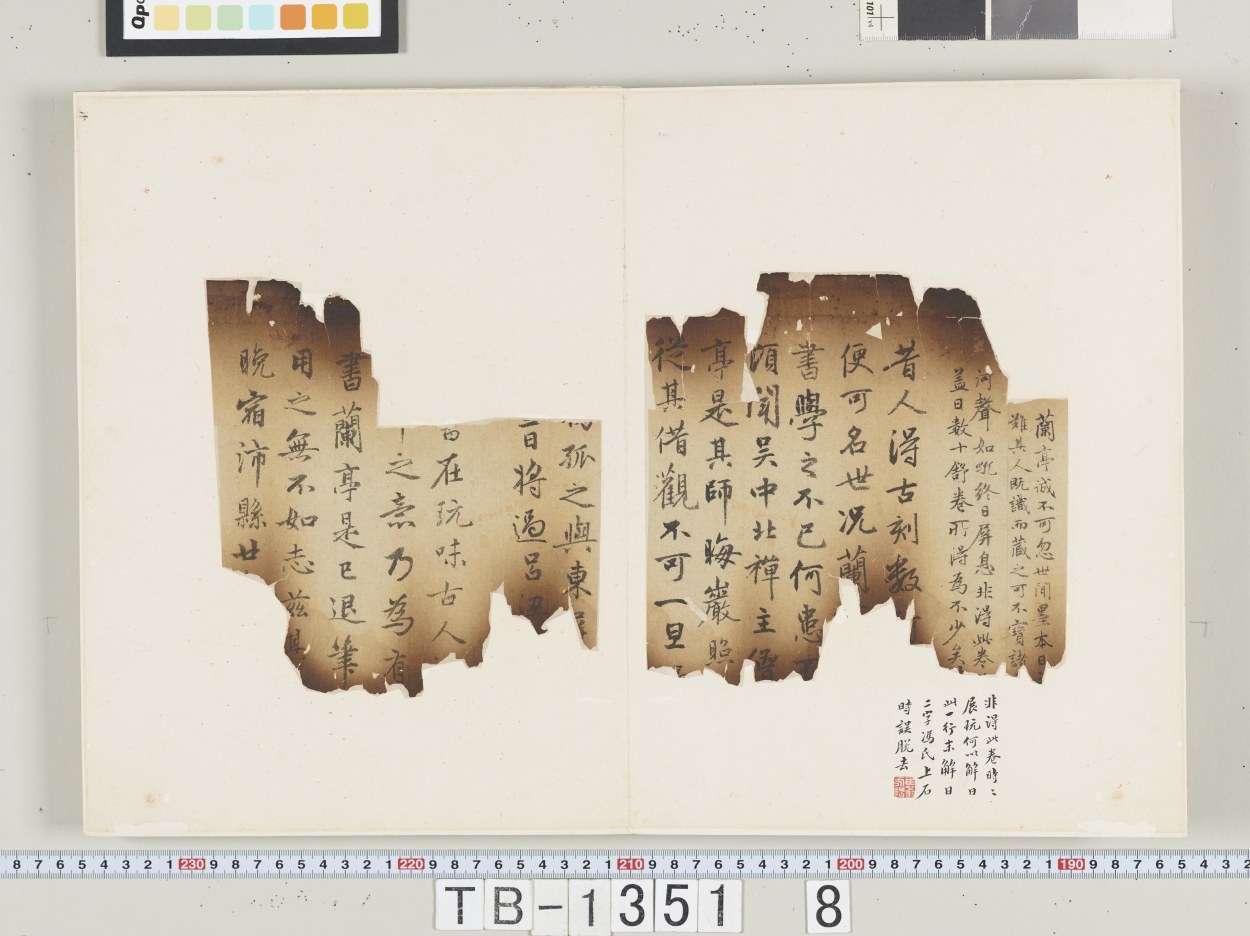 蘭亭誠不可忽世間墨本日
難其人既識而藏之可不寶諸
河聲如吼終日屏息非得此卷
蓋日數十舒卷所得為不少矣
昔人得古刻數
便可名世况蘭
書學之不已何患
頃聞吴中北禪主僧
亭是其師晦巖照
從其借觀不可一旦
孤之與東
百將過吕
在玩味古人
之意乃為有
書蘭亭是已退筆
用之無不如志兹
晚宿沛縣廿
非得此卷時〻
展玩何以解日
此一行末解日
二字馮氏上石
時誤脱去
Opo
101
8 7 6 5 4 3 2 1 230 9 8 7 6 5 4 3 2 1 220 9 8 7 6 5 4 3 2 1 210 9 8 7 6 5 4 3 2 1 200 9 8 7 6 5 4 3 2 1 190 9 8 7 6 5 4 3 2
TB-1351 8